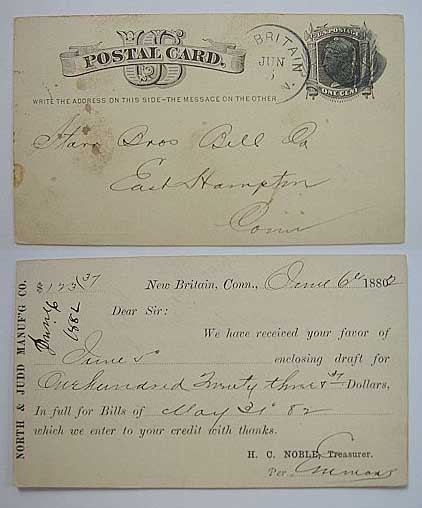 US
POSTAL CARD.
WRITE THE ADDRESS ON THIS SIDE–THE MESSAGE ON THE OTHER
BRITAIN
JUN
U.S. POSTAGE
ONE CENT
Starr Bros Bell Co
East Hampton
Conn
NORTH & JUDD MANUF'G CO.
$123.37
New Britain, Conn., June 6th 1882
June 6
1882
Dear Sir:
We have received your favor of
June 5 enclosing draft for
One hundred Twenty three & 37 Dollars,
In full for Bills of May 31st 82
which we enter to your credit with thanks.
H. C. NOBLE, Treasurer.
Per Emmons